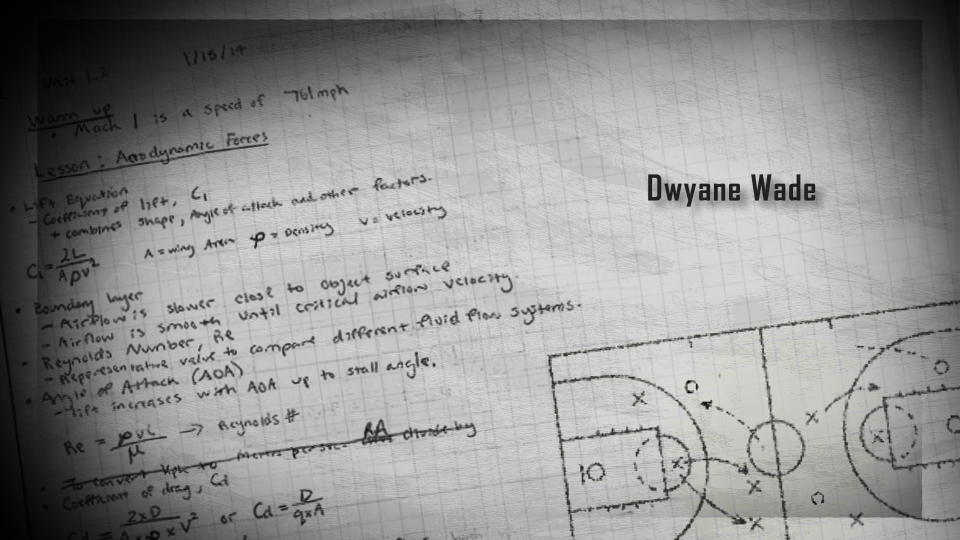 Unit 1.2
1/15/14
Warm up
• Mach 1 is a speed of 761mph
Lesson: Aerodynamic Forces
• Lift Equation
- Coefficient of lift, Cl
+ combines shape, Angle of attack and other factors.
Cl = 2L / Aρv² A = wing Area ρ = Density v = velocity
Dwyane Wade
• Boundary layer
- Airflow is slower close to object surface
- Airflow is smooth until critical airflow velocity.
• Reynolds Number, Re
- Representative value to compare different fluid flow systems.
• Angle of Attack (AOA)
- Lift increases with AOA up to stall angle.
Re = ρvL / μ → Reynolds #
• To convert kph to divide by
• Coefficient of drag, Cd
Cd = 2xD / Axρxv² or Cd = D / qxA